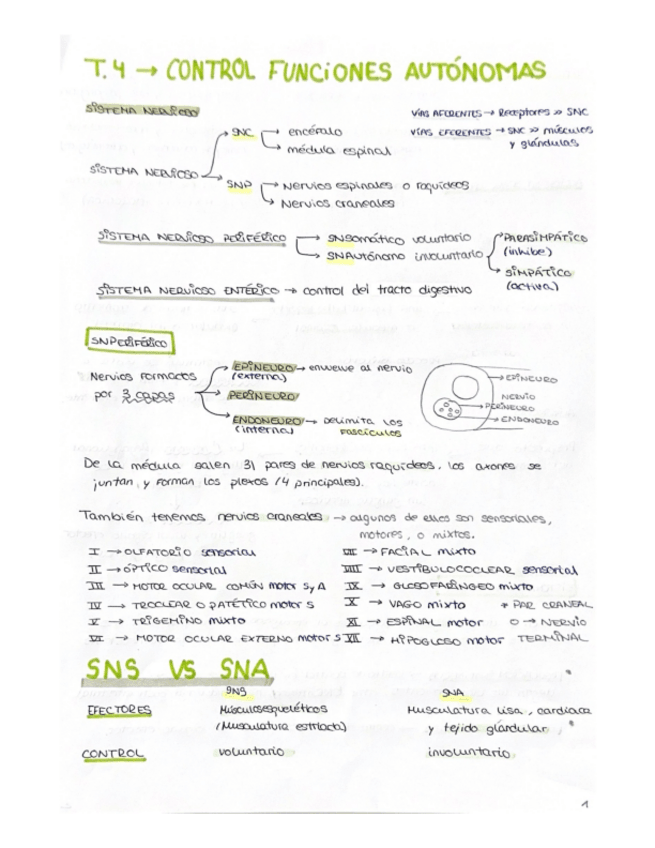 T.4 → CONTROL FUNCIONES AUTÓNOMAS
SISTEMA NERVIOSO
VÍAS AFERENTES → Receptores » SNC
VÍAS EFERENTES → SNC » músculos
y glándulas
SISTEMA NERVIOSO
SNC
encéfalo
médula espinal
SNP
Nervios espinales o raquídeos
Nervios craneales
SISTEMA NERVIOSO PERIFÉRICO
SNSomático voluntario
SNAutónomo involuntario
PARASIMPÁTICO
(inhibe)
SIMPÁTICO
(activa)
SISTEMA NERVIOSO ENTÉRICO → control del tracto digestivo
SNPERIFÉRICO
Nervios formados
por 3 capas
EPINEURO → envuelve al nervio
(externa)
PERINEURO
ENDONEURO → delimita los
(interna) fascículos
EPINEURO
NERVIO
PERINEURO
ENDONEURO
De la médula salen 31 pares de nervios raquídeos. Los axones se
juntan y forman los plexos (4 principales).
También tenemos nervios craneales → algunos de ellos son sensoriales,
motores, o mixtos.
I → OLFATORIO sensorial
II → ÓPTICO sensorial
III → MOTOR OCULAR COMÚN motor S y A
IV → TROCLEAR O PATÉTICO motor S
V → TRIGEMINO mixto
VI → MOTOR OCULAR EXTERNO motor S
VII → FACIAL mixto
VIII → VESTÍBULOCOCLEAR sensorial
IX → GLOSOFARÍNGEO mixto
X → VAGO mixto
XI → ESPINAL motor
XII → HIPOGLOSO motor
* PAR CRANEAL
0 → NERVIO
TERMINAL
SNS VS SNA
SNS
SNA
EFECTORES
Músculos esqueléticos
(Musculatura estriada)
Musculatura lisa, cardiaca
y tejido glandular
CONTROL
voluntario
involuntario
1